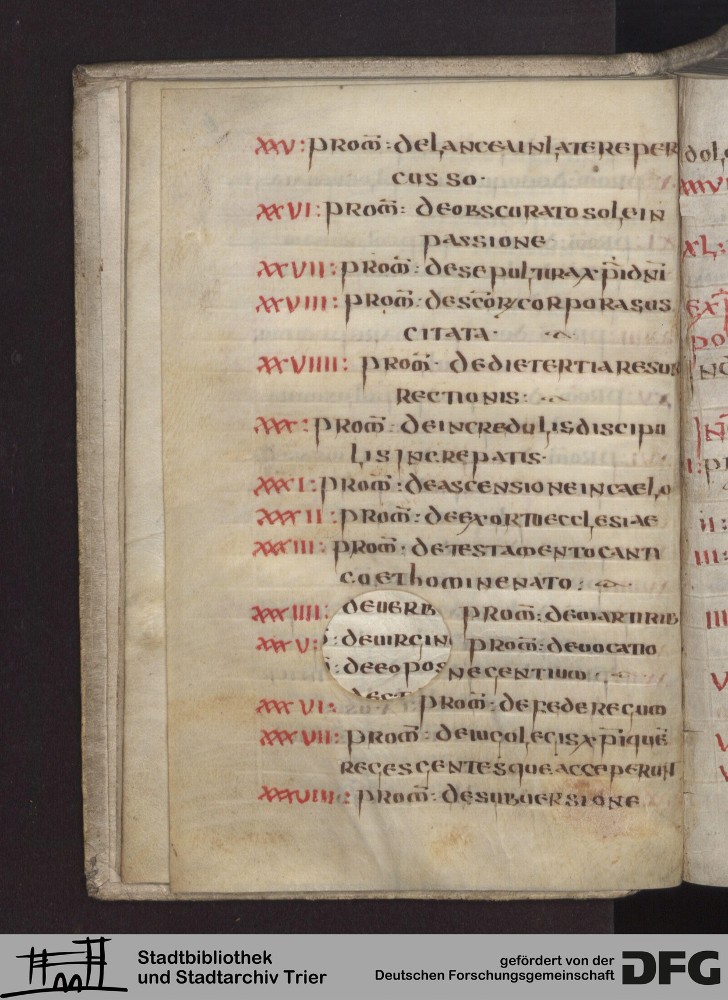 XXV: prom̄: delanceainlatereper
cusso·
XXVI: prom̄: deobscuratosolein
passione
XXVII: prom̄: desepulturaxp̄idn̄i
XXVIII: prom̄: corporasus
citata·
XXVIIII: prom̄· dedietertiaresur
rectionis:
XXX: prom̄: deincredulisdiscipu
lisincrepatis·
XXXI: prom̄: deascensioneincaelo
XXXII: prom̄: deexortuecclesiae
XXXIII: prom̄: detestamentocanti
coethominenato:
XXXIIII: deuerb prom̄: demartirib
XXXV: deuirgin prom̄: deuocatio
deeopos necentium
XXXVI: prom̄: defederecum
XXXVII: prom̄: xp̄iquē
regesgentesqueacceperun
XXXVIII: prom̄: desubuersione
Stadtbibliothek
und Stadtarchiv Trier
gefördert von der
Deutschen Forschungsgemeinschaft
DFG